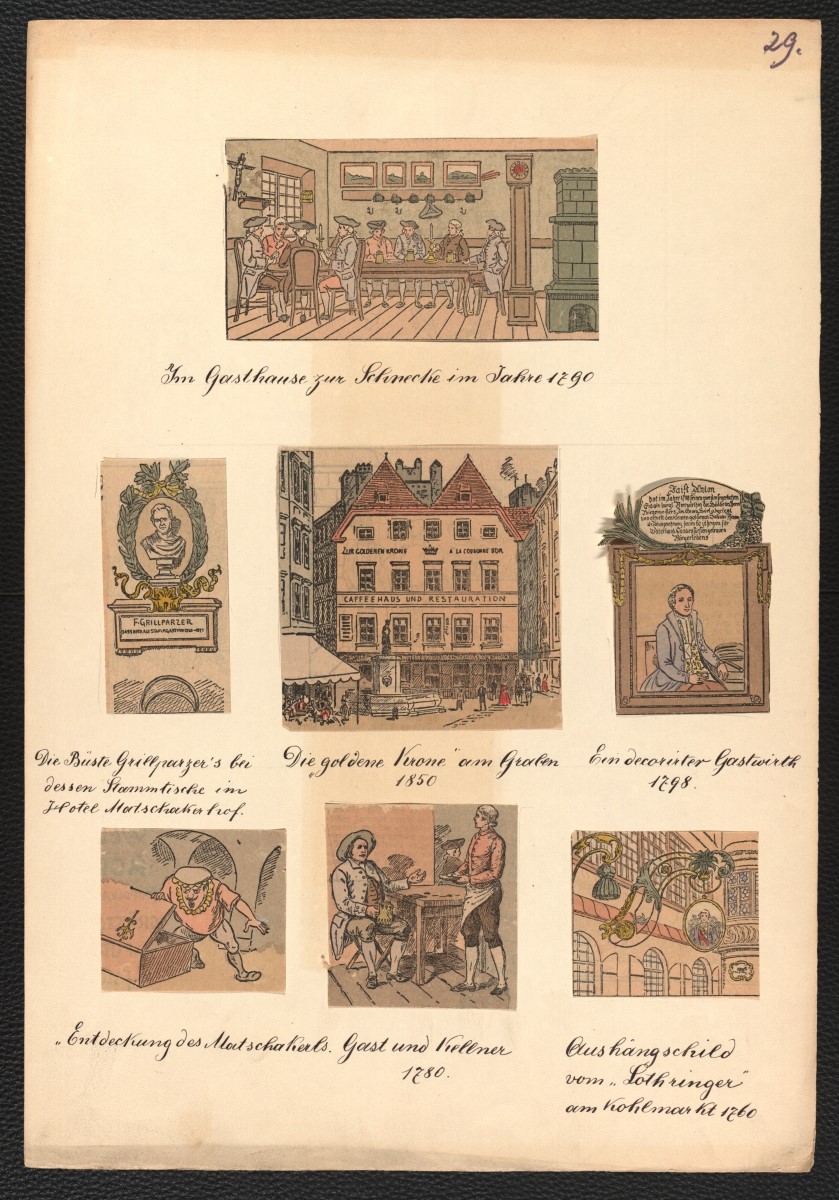 29.
Im Gasthause zur Schnecke im Jahre 1790
F. GRILLPARZER
ZUR GOLDENEN KRONE A LA COURONNE D'OR
CAFFEEHAUS UND RESTAURATION
Faist Anton
hat im Jahre 1798
Bürgerlebens
Die Büste Grillparzer's bei
dessen Stammtische im
Hotel Matschakerhof.
Die „goldene Krone" am Graben
1850
Ein decorirter Gastwirth
1798.
„Entdeckung des Matschakerls.
Gast und Kellner
1780.
Aushängschild
vom „Lothringer"
am Kohlmarkt 1760